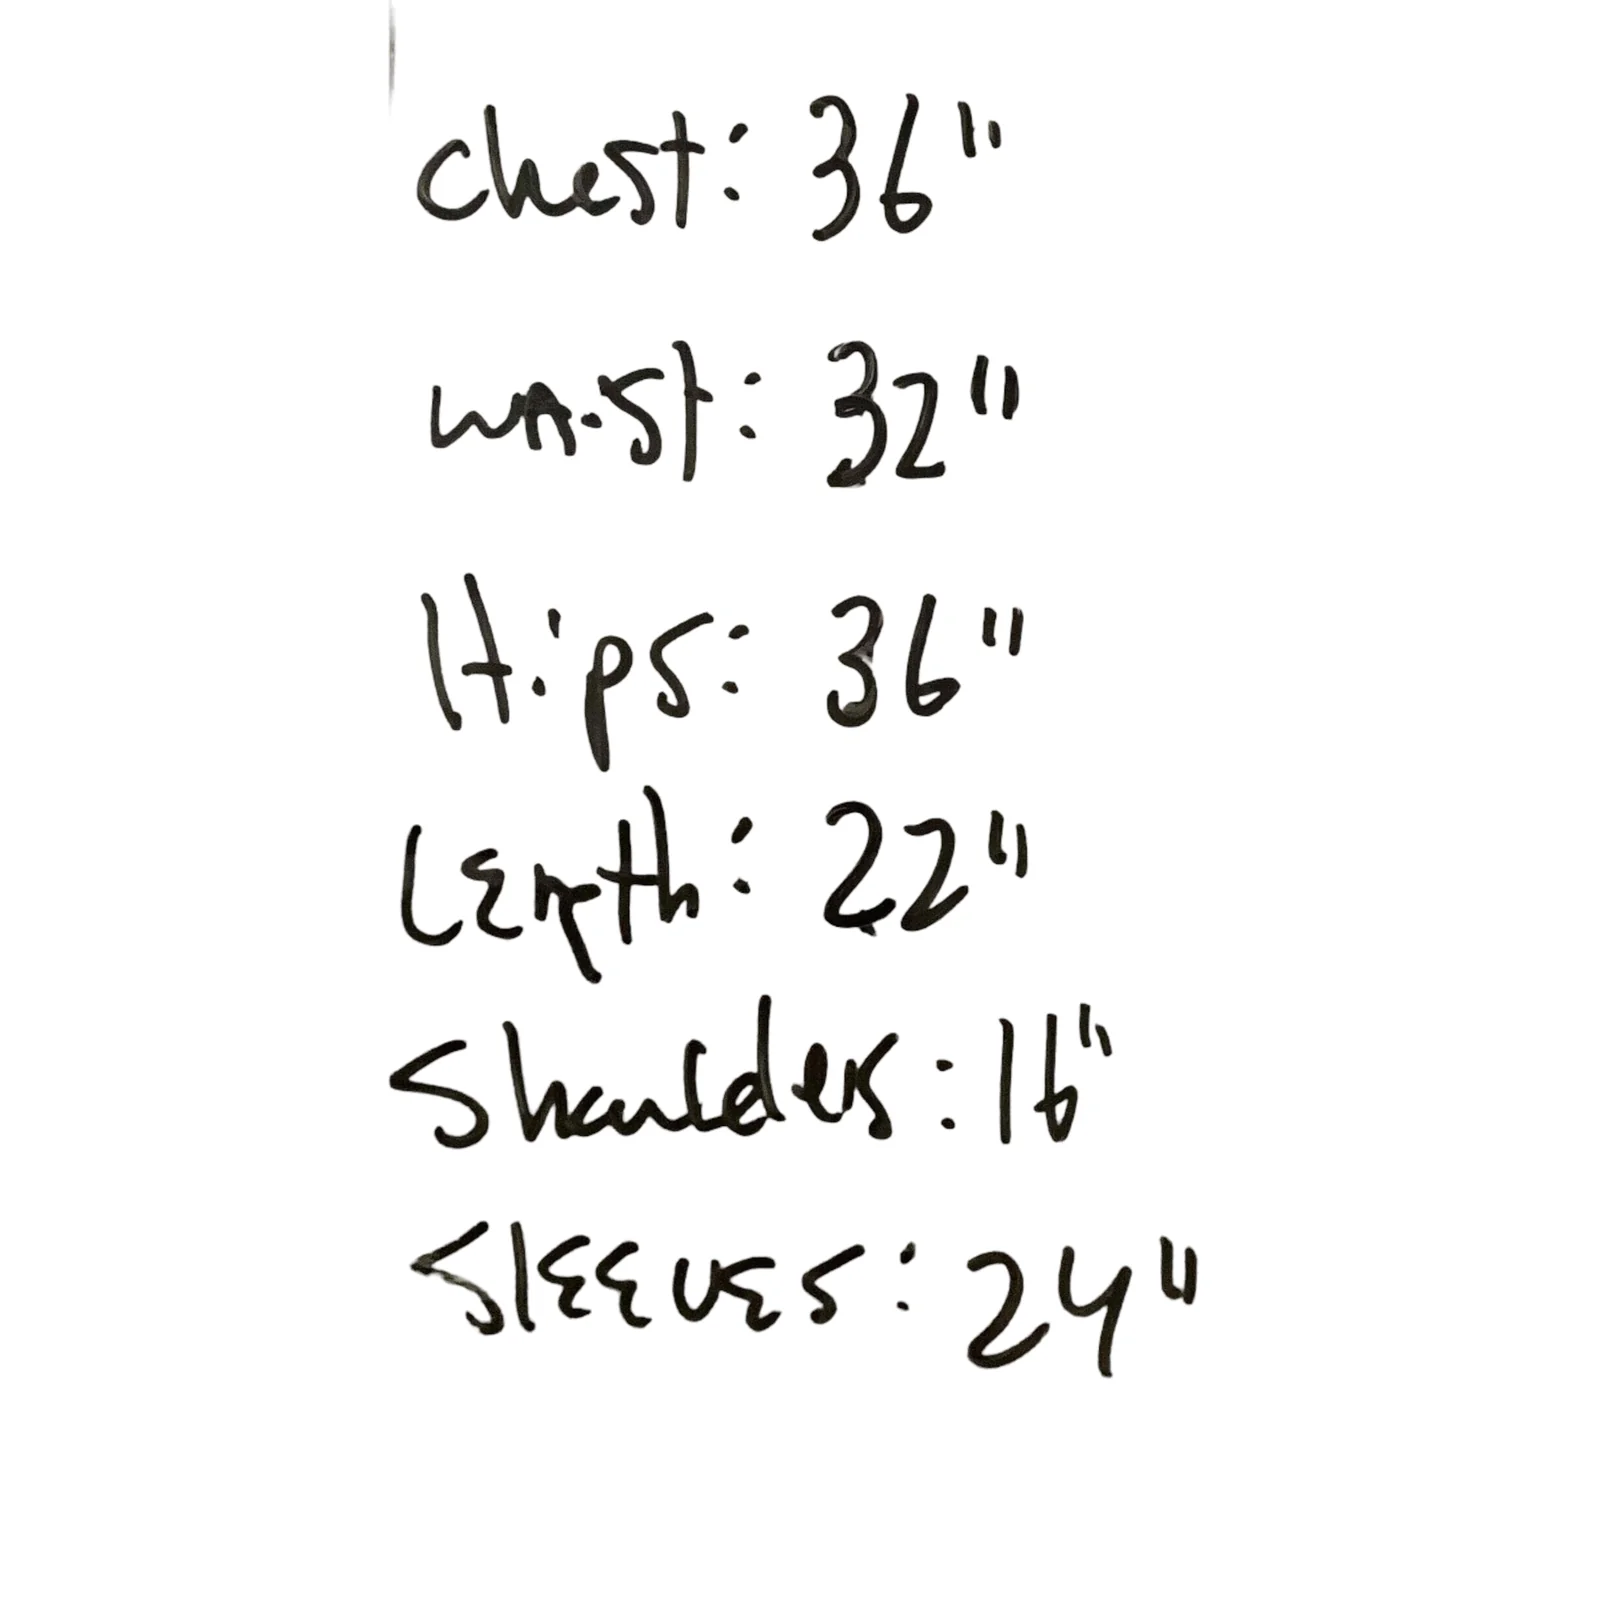 Chest: 36"
Waist: 32"
Hips: 36"
Length: 22"
Shoulders: 16"
Sleeves: 24"